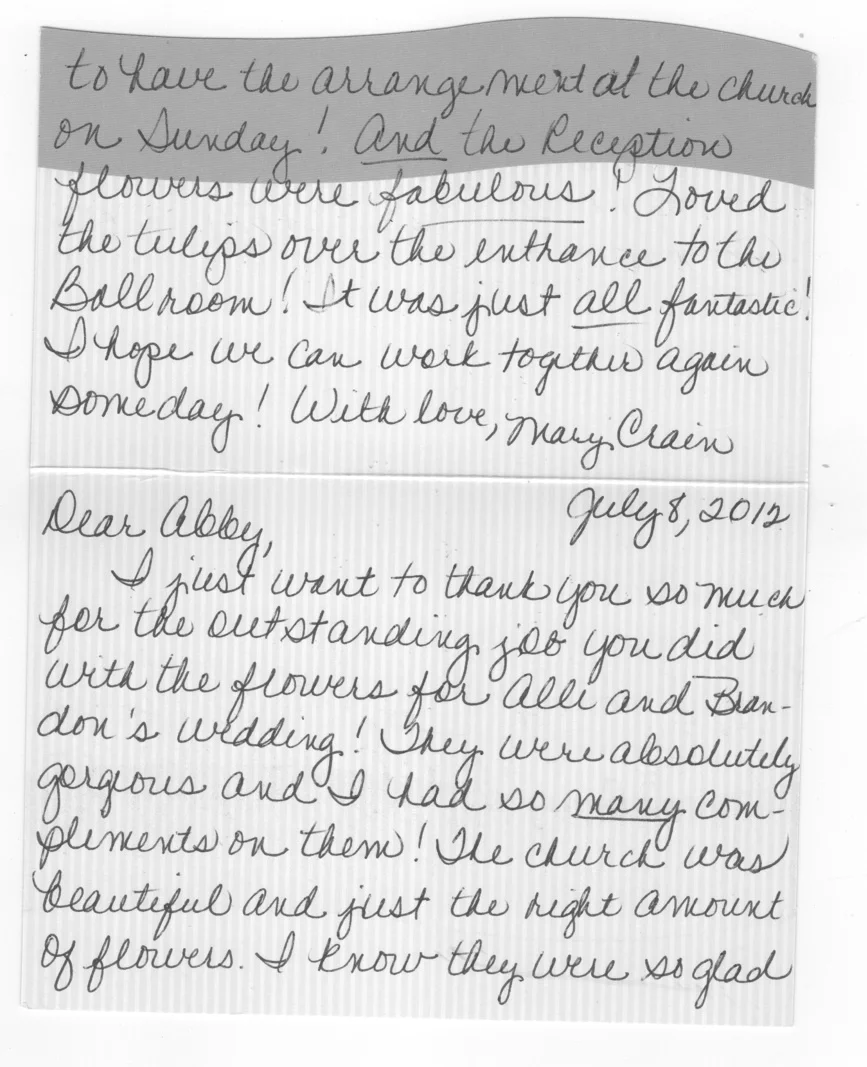 July 8, 2012
Dear Abby,
I just want to thank you so much
for the outstanding job you did
with the flowers for Alli and Bran-
don's wedding! They were absolutely
gorgeous and I had so many com-
pliments on them! The church was
beautiful and just the right amount
of flowers. I know they were so glad
to have the arrangement at the church
on Sunday! And the Reception
flowers were fabulous! Loved
the tulips over the enthance to the
Ballroom! It was just all fantastic!
I hope we can work together again
someday! With love, Mary Crain